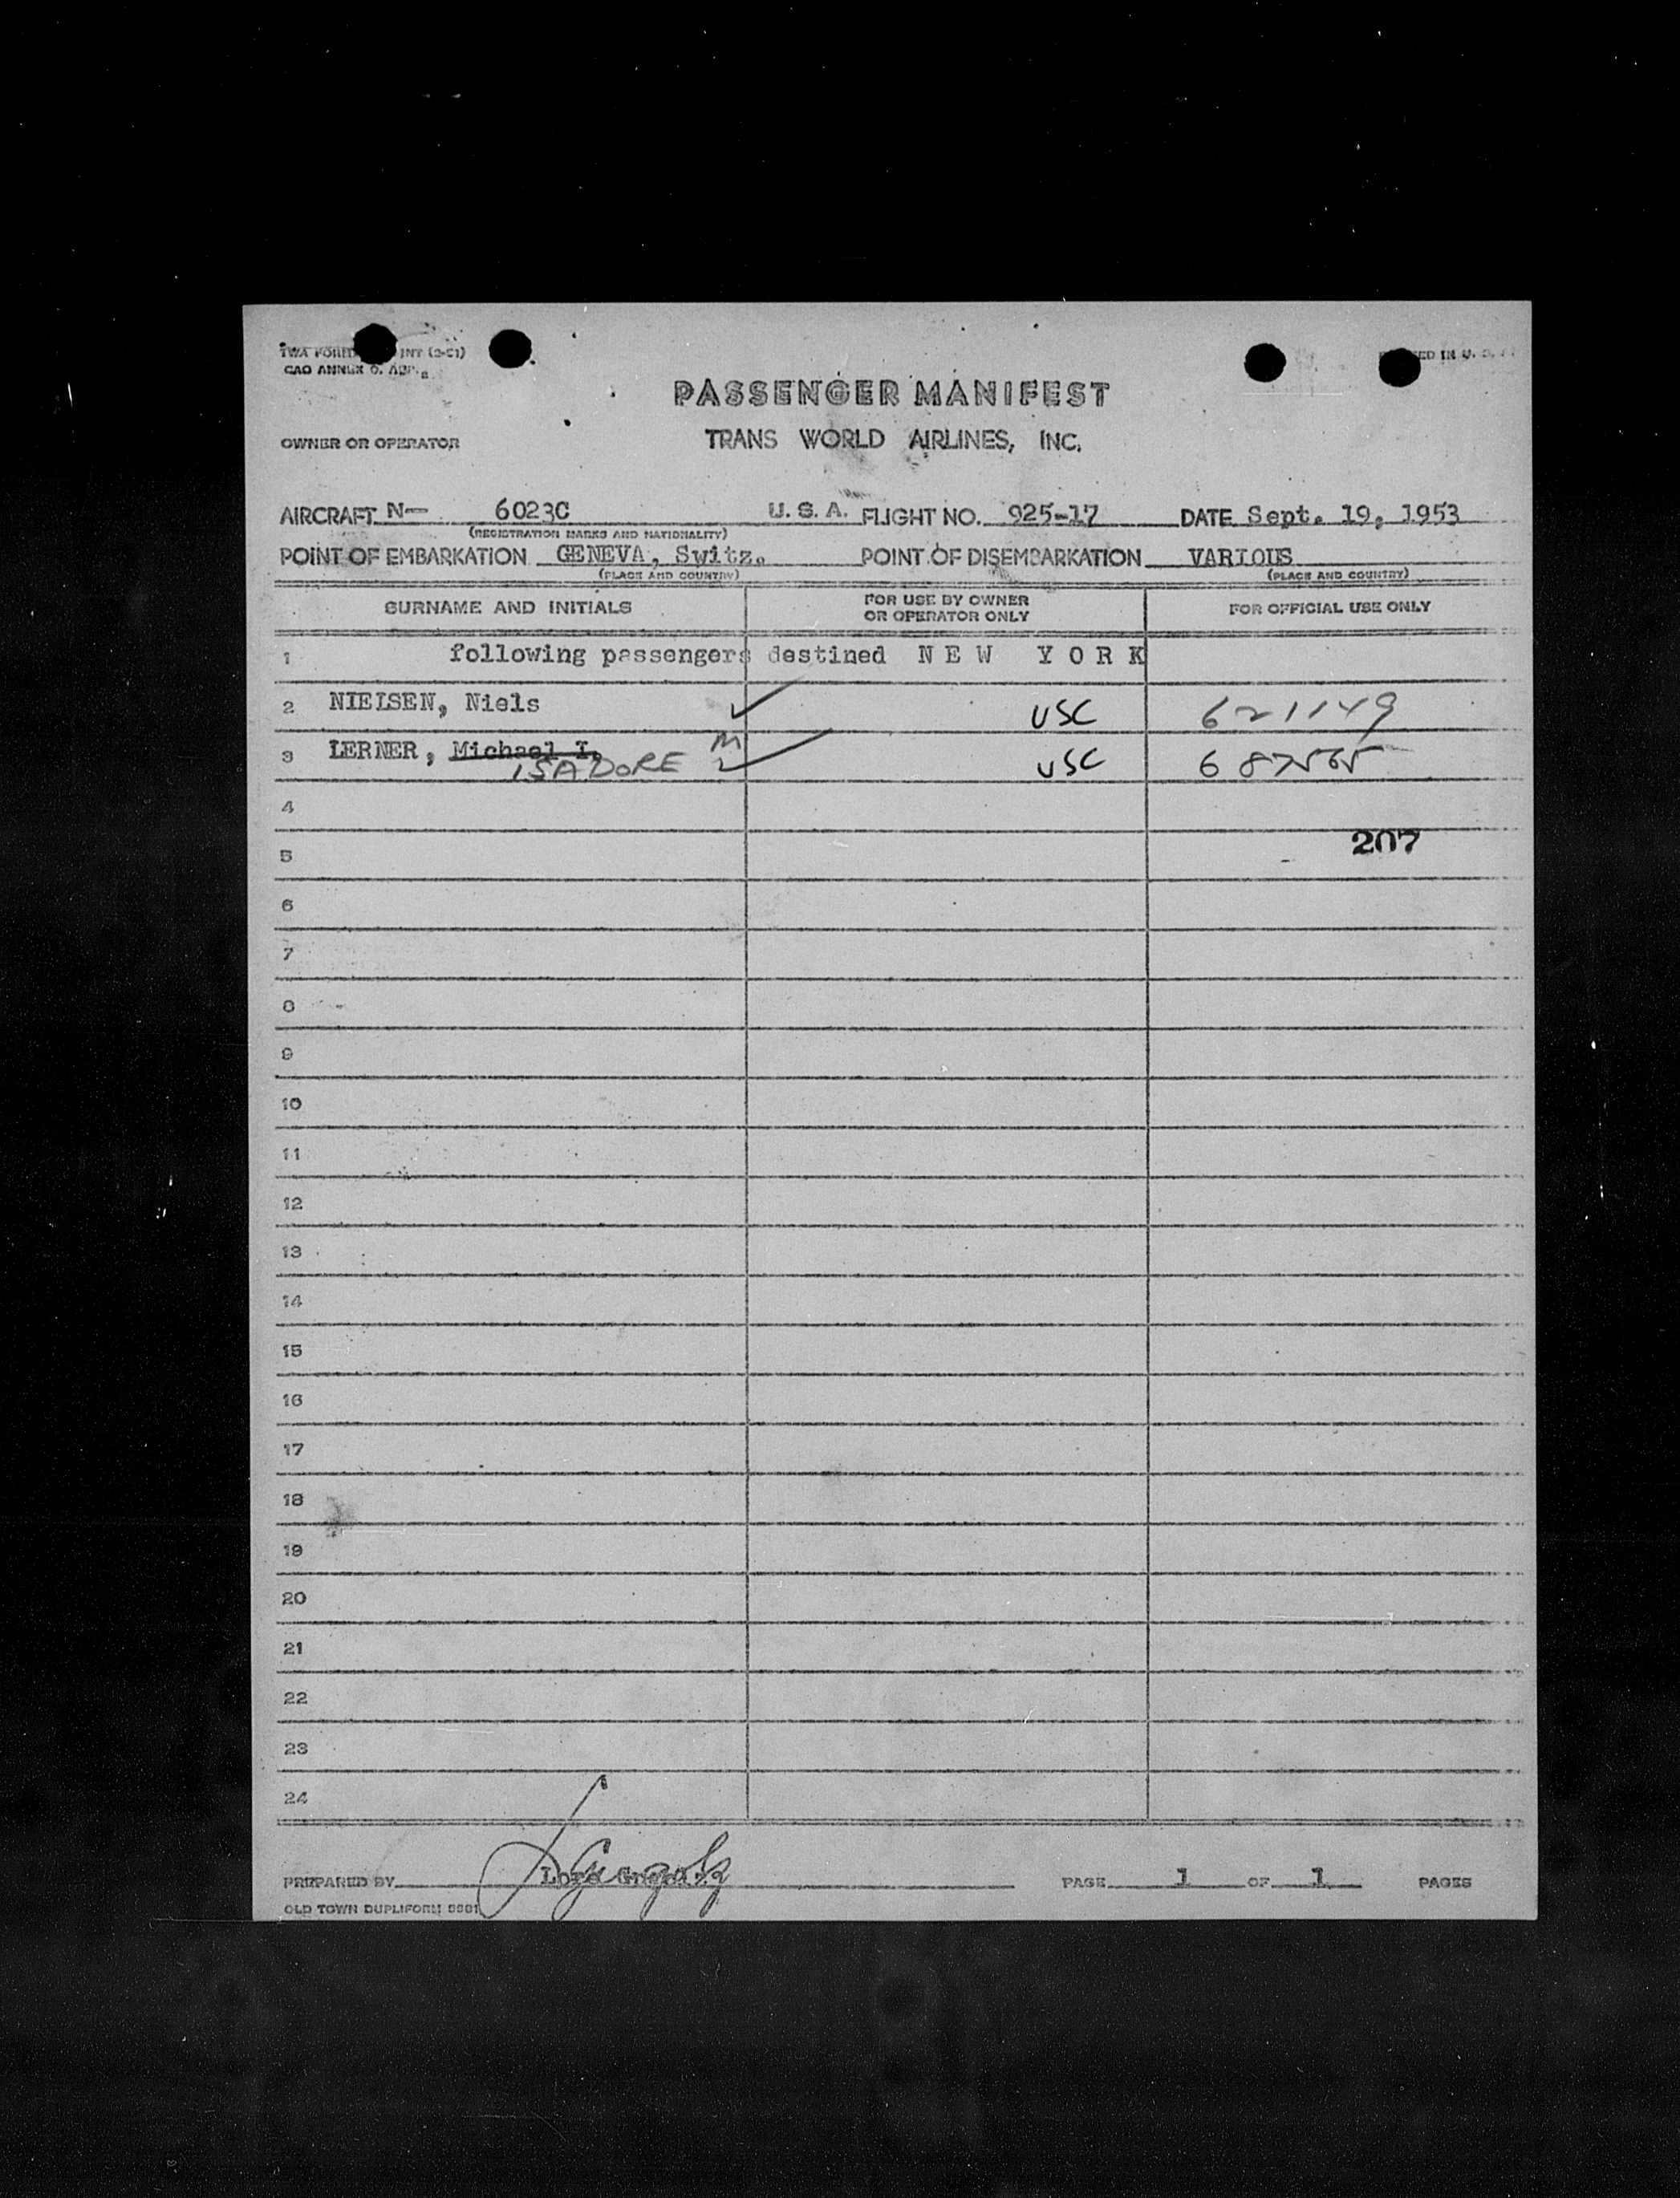 CAO ANNEX 9. APP.
PASSENGER MANIFEST
OWNER OR OPERATOR TRANS WORLD AIRLINES, INC.
AIRCRAFT N- 6023C U. S. A. FLIGHT NO. 925-17 DATE Sept. 19, 1953
(REGISTRATION MARKS AND NATIONALITY)
POINT OF EMBARKATION GENEVA, Switz. POINT OF DISEMBARKATION VARIOUS
(PLACE AND COUNTRY) (PLACE AND COUNTRY)
SURNAME AND INITIALS FOR USE BY OWNER OR OPERATOR ONLY FOR OFFICIAL USE ONLY
1 following passengers destined N E W Y O R K
2 NIELSEN, Niels USC 621149
3 LERNER, Michael I. M USC
ISADORE
4
207
5
6
7
8
9
10
11
12
13
14
15
16
17
18
19
20
21
22
23
24
PREPARED BY PAGE 1 OF 1 PAGES
OLD TOWN DUPLIFORM